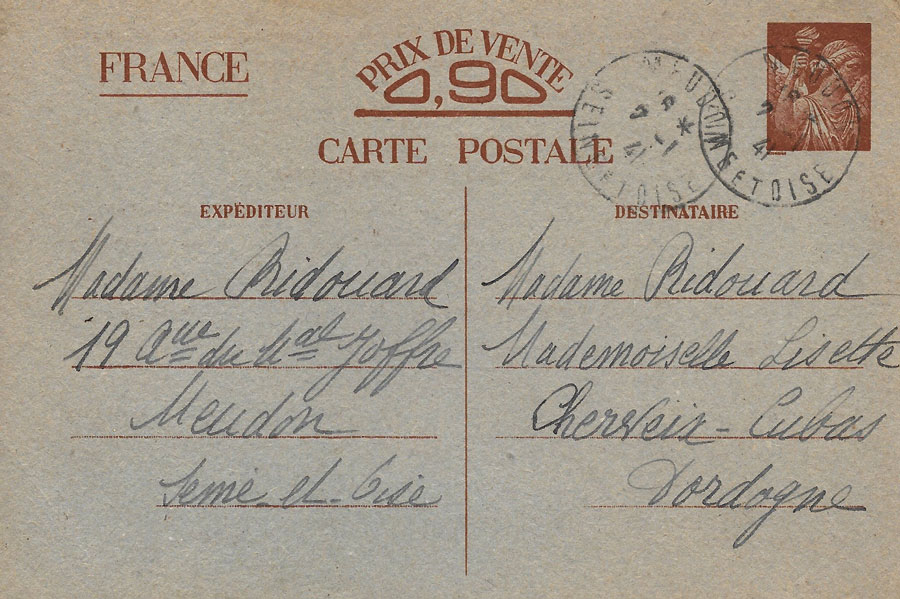 FRANCE
PRIX DE VENTE
0,90
CARTE POSTALE
MEUDON
SEINE ET OISE
7-1
41
MEUDON
SEINE ET OISE
41
EXPÉDITEUR
Madame Ridouard
19 Aue du Mal Joffre
Meudon
Seine-et-Oise
DESTINATAIRE
Madame Ridouard
Mademoiselle Lisette
Cherveix-Cubas
Dordogne